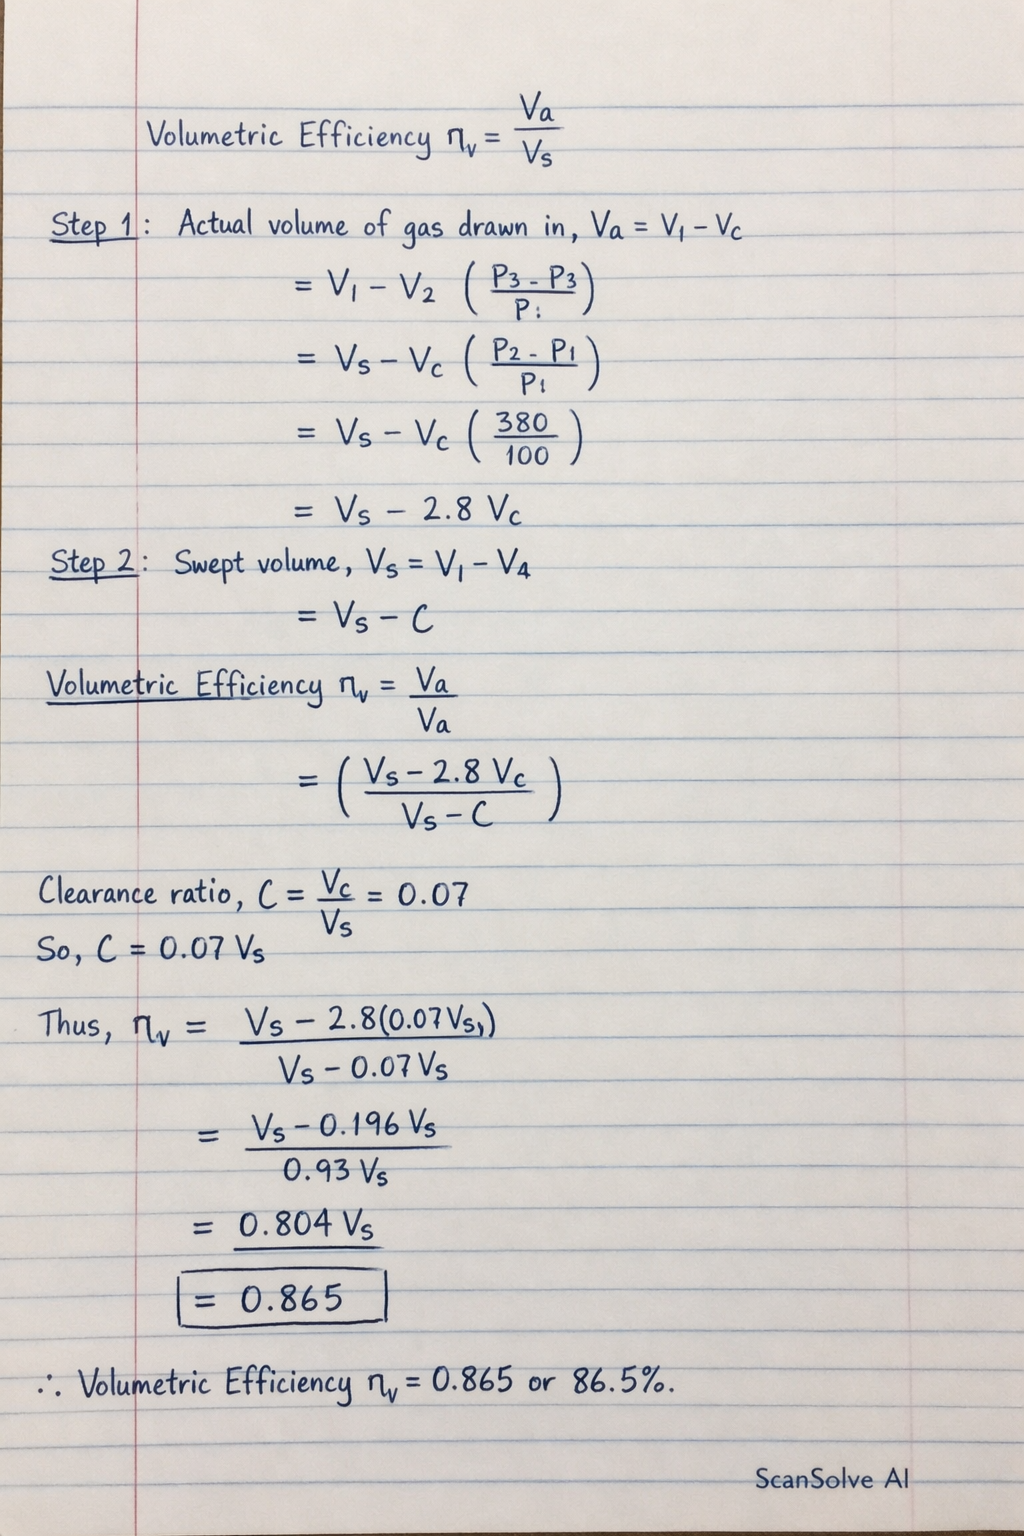 Volumetric Efficiency ηv = Va / Vs
Step 1: Actual volume of gas drawn in, Va = V1 - Vc
= V1 - V2 ( P3 - P3 / P: )
= Vs - Vc ( P2 - P1 / P1 )
= Vs - Vc ( 380 / 100 )
= Vs - 2.8 Vc
Step 2: Swept volume, Vs = V1 - V4
= Vs - C
Volumetric Efficiency ηv = Va / Va
= ( Vs - 2.8 Vc / Vs - C )
Clearance ratio, C = Vc / Vs = 0.07
So, C = 0.07 Vs
Thus, ηv = Vs - 2.8(0.07Vs,) / Vs - 0.07Vs
= Vs - 0.196 Vs / 0.93 Vs
= 0.804 Vs
= 0.865
∴ Volumetric Efficiency ηv = 0.865 or 86.5%.
ScanSolve AI